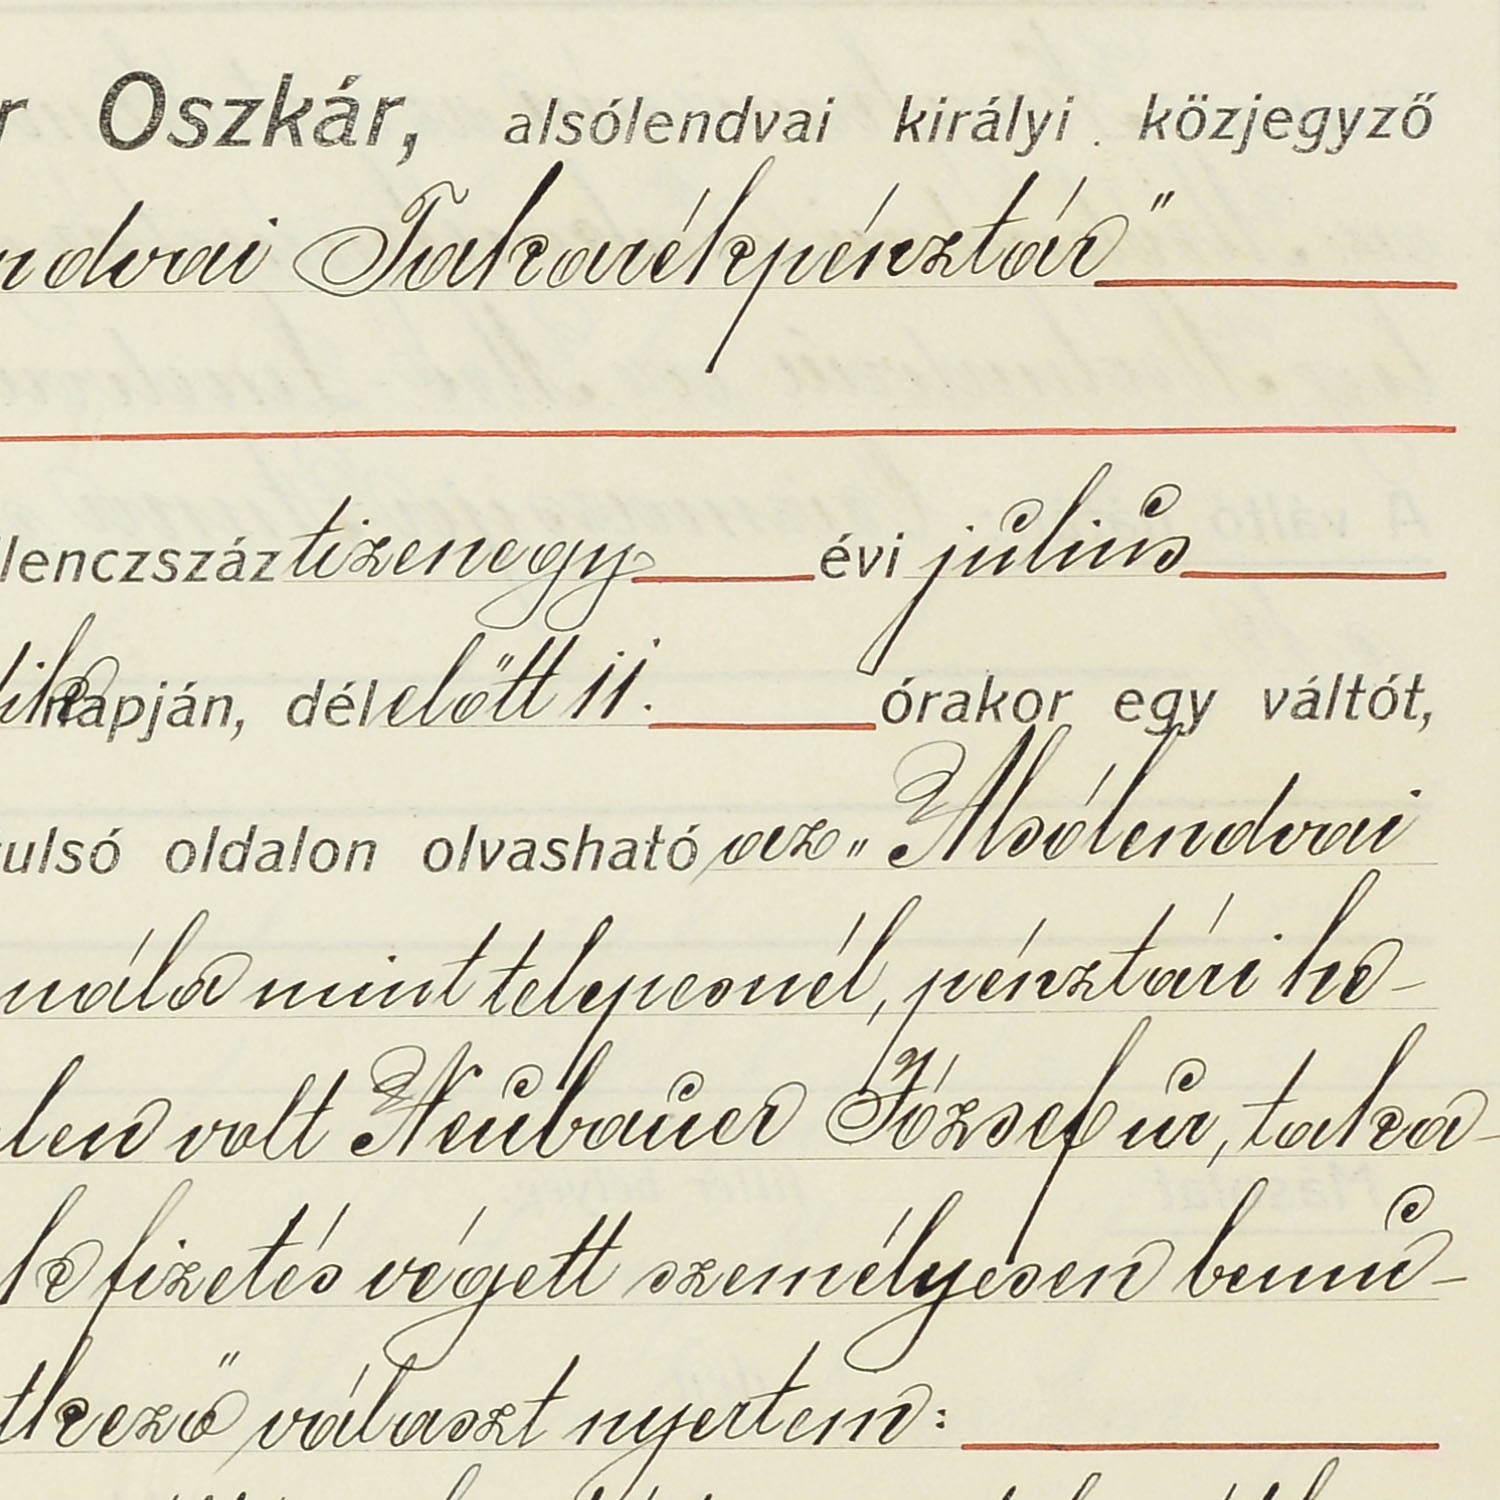 r Oszkár, alsólendvai királyi közjegyző
ndvai Takarékpénztár"
lenczszáz tizenegy évi julius
dika napján, délelőtt 11. órakor egy váltót,
tulsó oldalon olvasható az „Alsólendvai
nála mint telepesnél, pénztári he-
len volt Neubauer József ur, taka-
k fizetés végett személyesen bemu-
tkező választ nyertem: